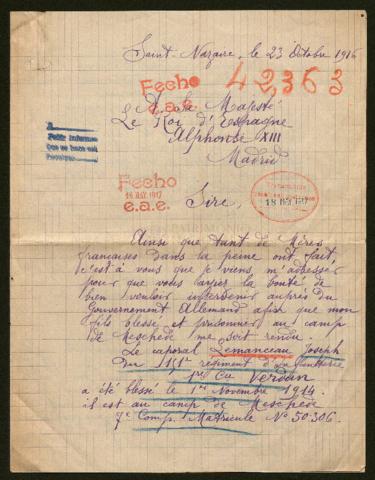 Saint-Nazaire, le 23 Octobre 1916
Fecho
e.a.e.
42363
A Sa Majesté
Le Roi d'Espagne
Alphonse XIII
Madrid
Pedir informes
Que se hace así
Fecho
16 MAY. 1917
e.a.e.
18 MAY 1917
Sire,
Ainsi que tant de Mères
françaises dans la peine ont fait,
c'est à vous que je viens m'adresser
pour que vous layez la bonté de
bien vouloir intervenir auprès du
Gouvernement Allemand afin que mon
fils blessé et prisonnier au camp
de Meschede me soit rendu.
Le caporal Lemanceau Joseph
du 151e régiment d'Infanterie
1re Cie Verdun
a été blessé le 1er Novembre 1914.
il est au camp de Meschede
7e Comp. Matricule No 50.306.